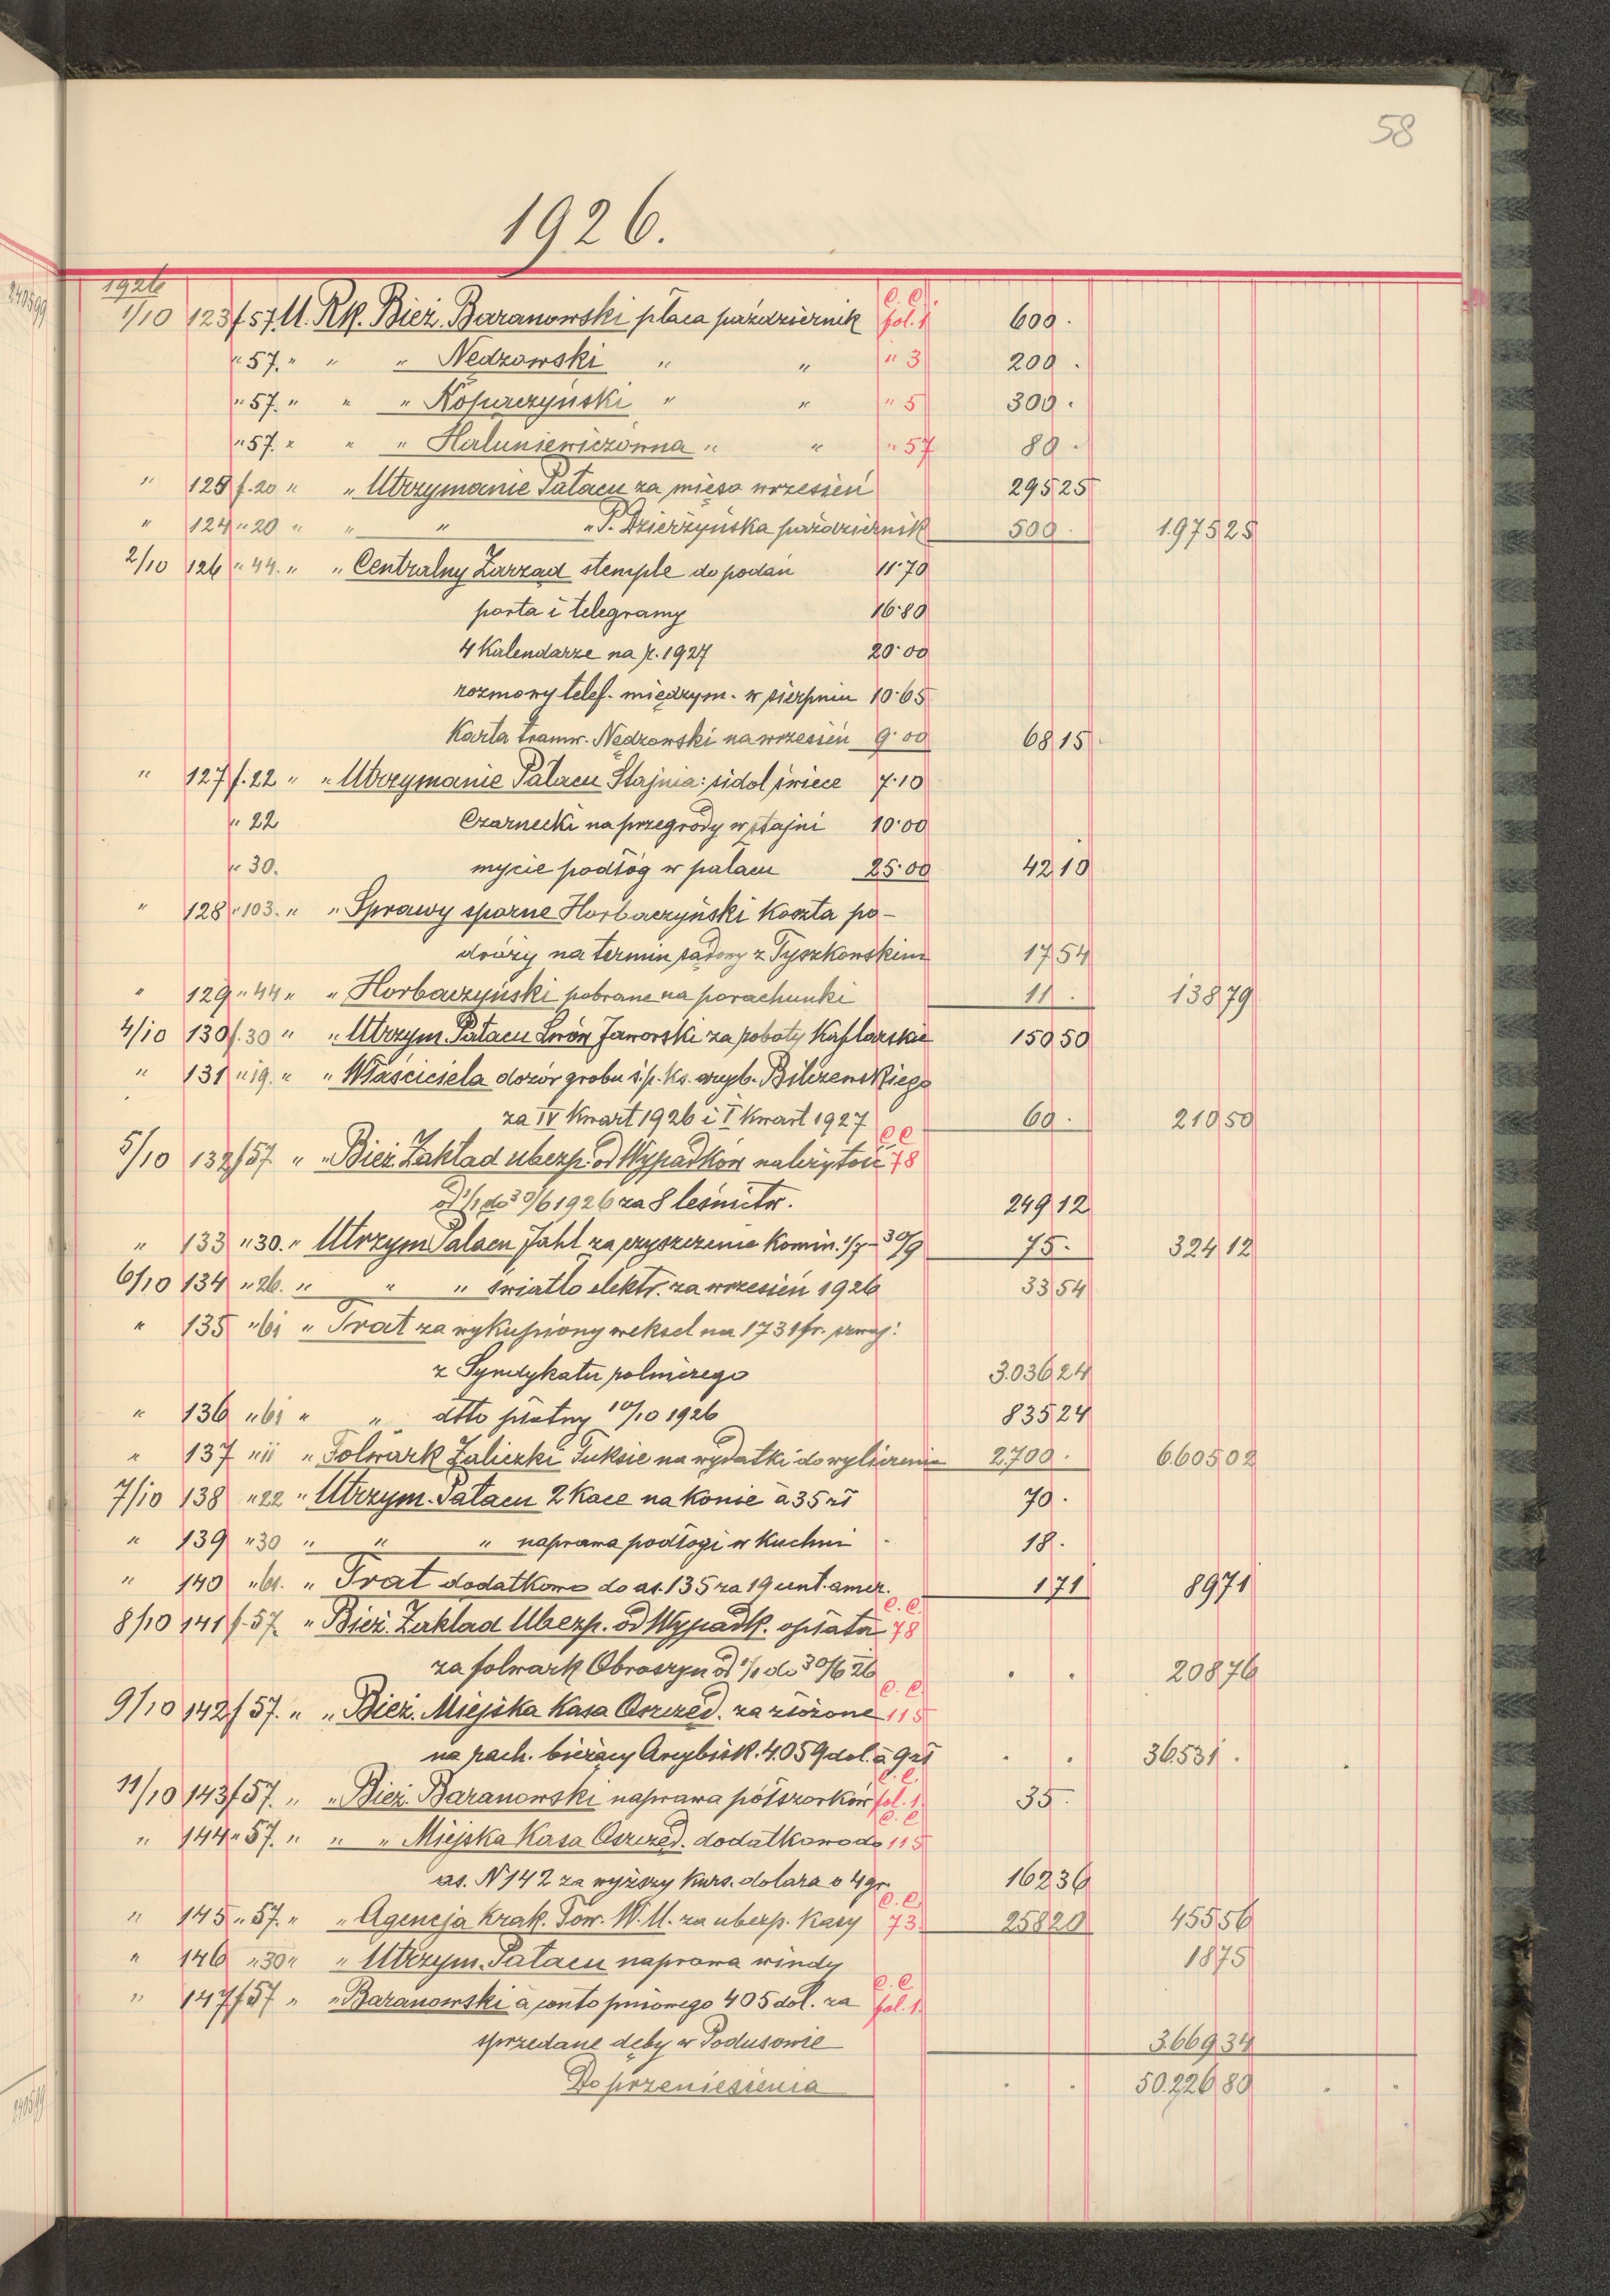 58
1926.
1926
1/10 123 f 57. U. Rk. Bież. Baranowski płaca październik c. c. fol. 1 600 .
" 57. " " " Nedzowski " " " 3 200 .
" 57. " " " Kopaczyński " " " 5 300 .
" 57. " " " Haluniewiczówna " " " 57 80 .
" 125 f. 20 " " Utrzymanie Pałacu za mięso wrzesień 295 25
" 124 " 20 " " " " P. Dzierżyńska październik 500 . 1.975 25
2/10 126 " 44. " " Centralny Zarząd stemple do podań 11·70
porta i telegramy 16·80
4 Kalendarze na r. 1927 20·00
rozmowy telef. międzym. w sierpniu 10·65
Karta tramw. Nedzowski na wrzesień 9·00 68 15
" 127 f. 22 " " Utrzymanie Pałacu Stajnia: sidol świece 7·10
" 22 Czarnecki na przegrody w stajni 10·00
" 30. mycie podłóg w pałacu 25·00 42 10
" 128 " 103. " " Sprawy sporne Horbaczyński Koszta po-
dróży na termin sądowy z Tyszkowskim 17 54
" 129 " 44 " " Horbaczyński pobrane na porachunki 11 . 138 79
4/10 130 f. 30 " " Utrzym. Pałacu Lwów Jaworski za roboty Kaflarskie 150 50
" 131 " 19. " " Właściciela dozór grobu ś.p. Ks. arcyb. Bilczewskiego
za IV Kwart 1926 i I Kwart 1927 60 . 210 50
5/10 132 f 57 " " Bież. Zakład ubezp. od Wypadków należytość c c 78
od 1/1 do 30/6 1926 za 8 leśnictw. 249 12
" 133 " 30. " Utrzym Pałacu Jahl za czyszczenie Komin. 1/7 - 30/9 75 . 324 12
6/10 134 " 26. " " " światło elektr. za wrzesień 1926 33 54
" 135 " 61 " Trat za wykupiony weksel na 1731 fr. szwaj.
z Syndykatu rolniczego 3.036 24
" 136 " 61 " " dtto płatny 10/10 1926 835 24
" 137 " 11 " Folwark Zaliczki Fuksie na wydatki do wyliczenia 2.700 . 6.605 02
7/10 138 " 22 " Utrzym. Pałacu 2 Kace na Konie à 35 zł 70 .
" 139 " 30 " " " naprawa podłogi w Kuchni 18 .
" 140 " 61. " Trat dodatkowo do as. 135 za 19 cent. amer. 1 71 89 71
8/10 141 f. 57. " Bież. Zakład Ubezp. od Wypadk. opłata c. c. 78
za folwark Obroszyn od 1/1 do 30/6 26 . . 208 76
9/10 142 f 57. " " Bież. Miejska Kasa Oszczęd. za złożone c. c. 115
na rach. bieżący Arcybisk. 4.059 dol. à 9 zł . . 36.531 .
11/10 143 f 57. " " Bież. Baranowski naprawa półszorków c. c. fol. 1 35 .
" 144 " 57. " " " Miejska Kasa Oszczęd. dodatkowo do c. c 115
as. N 142 za wyższy Kurs. dolara o 4 gr. 162 36
" 145 " 57. " " Agencja Krak. Tow. W. U. za ubezp. Kasy c. c. 73 258 20 455 56
" 146 " 30 " " Utrzym. Pałacu naprawa windy 18 75
" 147 f 57 " " Baranowski à conto pniowego 405 dol. za c. c fol. 1.
sprzedane dęby w Podusowie 3.669 34
Do przeniesienia . . 50.226 80 . .